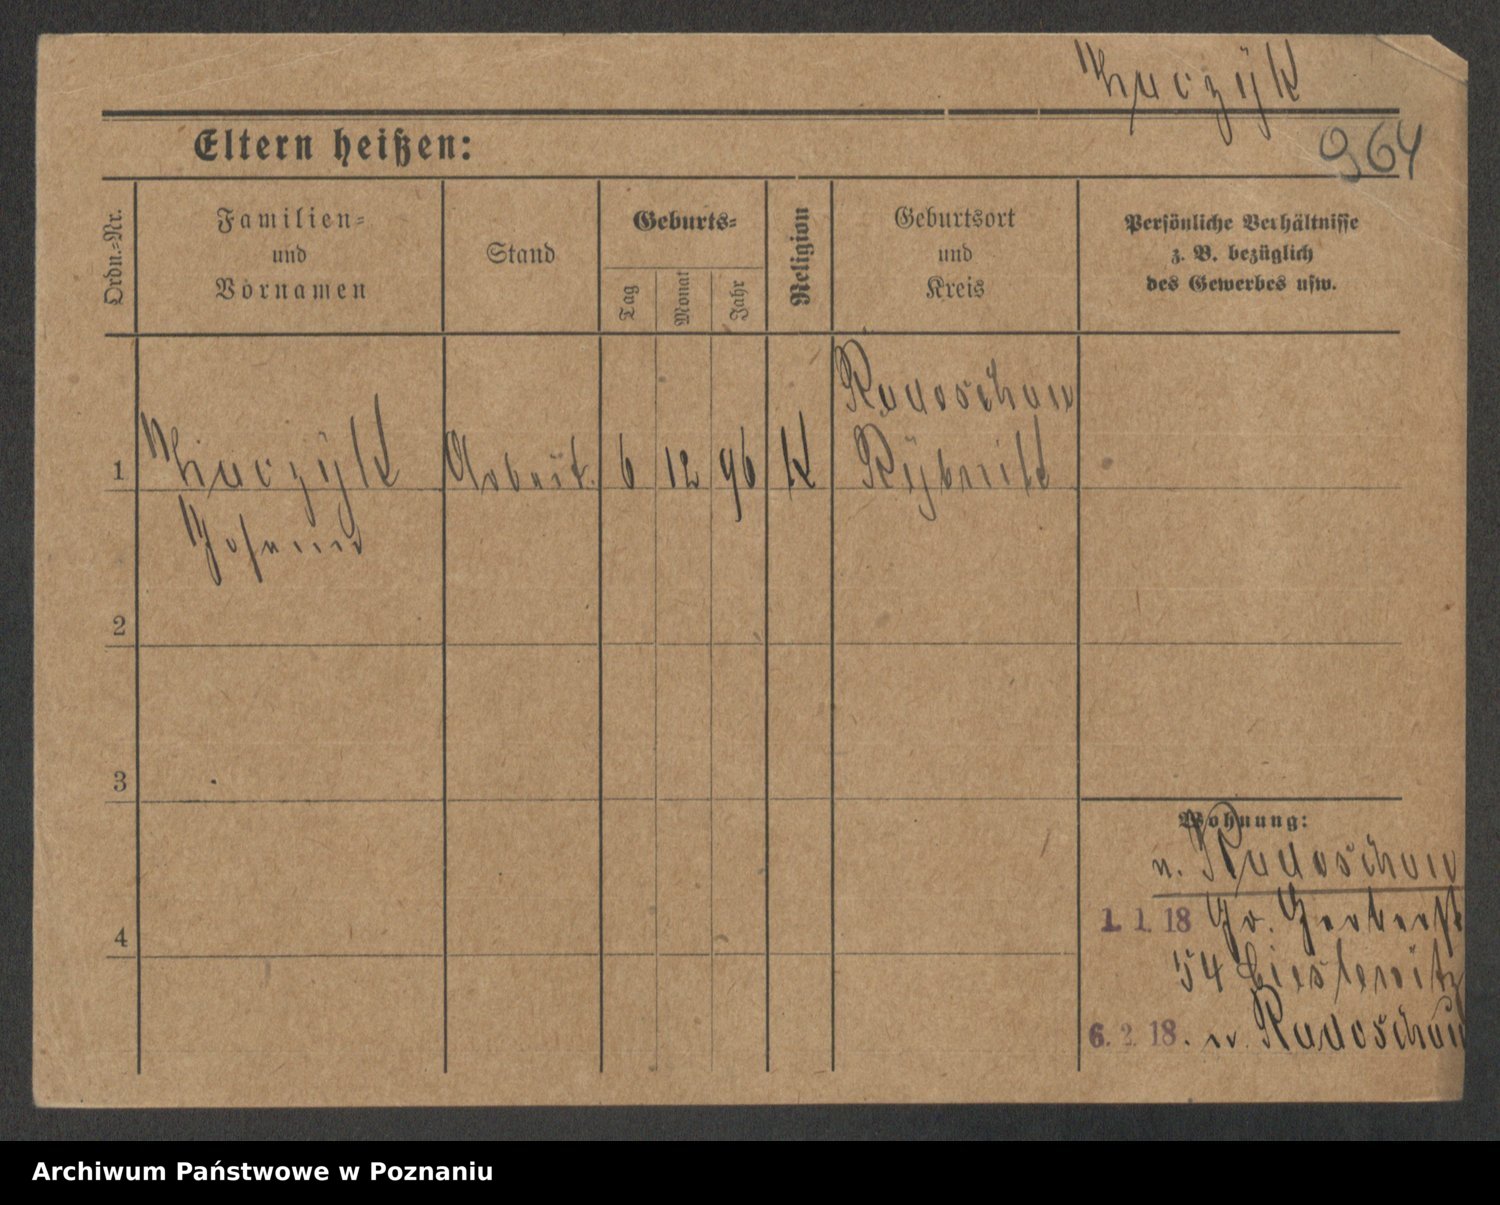 964
Eltern heißen:
Ordn.=Nr.
Familien=
und
Vornamen
Stand
Geburts=
Tag
Monat
Jahr
Religion
Geburtsort
und
Kreis
Persönliche Verhältnisse
z. B. bezüglich
des Gewerbes usw.
Radoschau
1 6 12 96 K Rybnik
2
3
Wohnung:
n. Radoschau
1. 1. 18
4
54
6. 2. 18. n. Radoschau
Archiwum Państwowe w Poznaniu